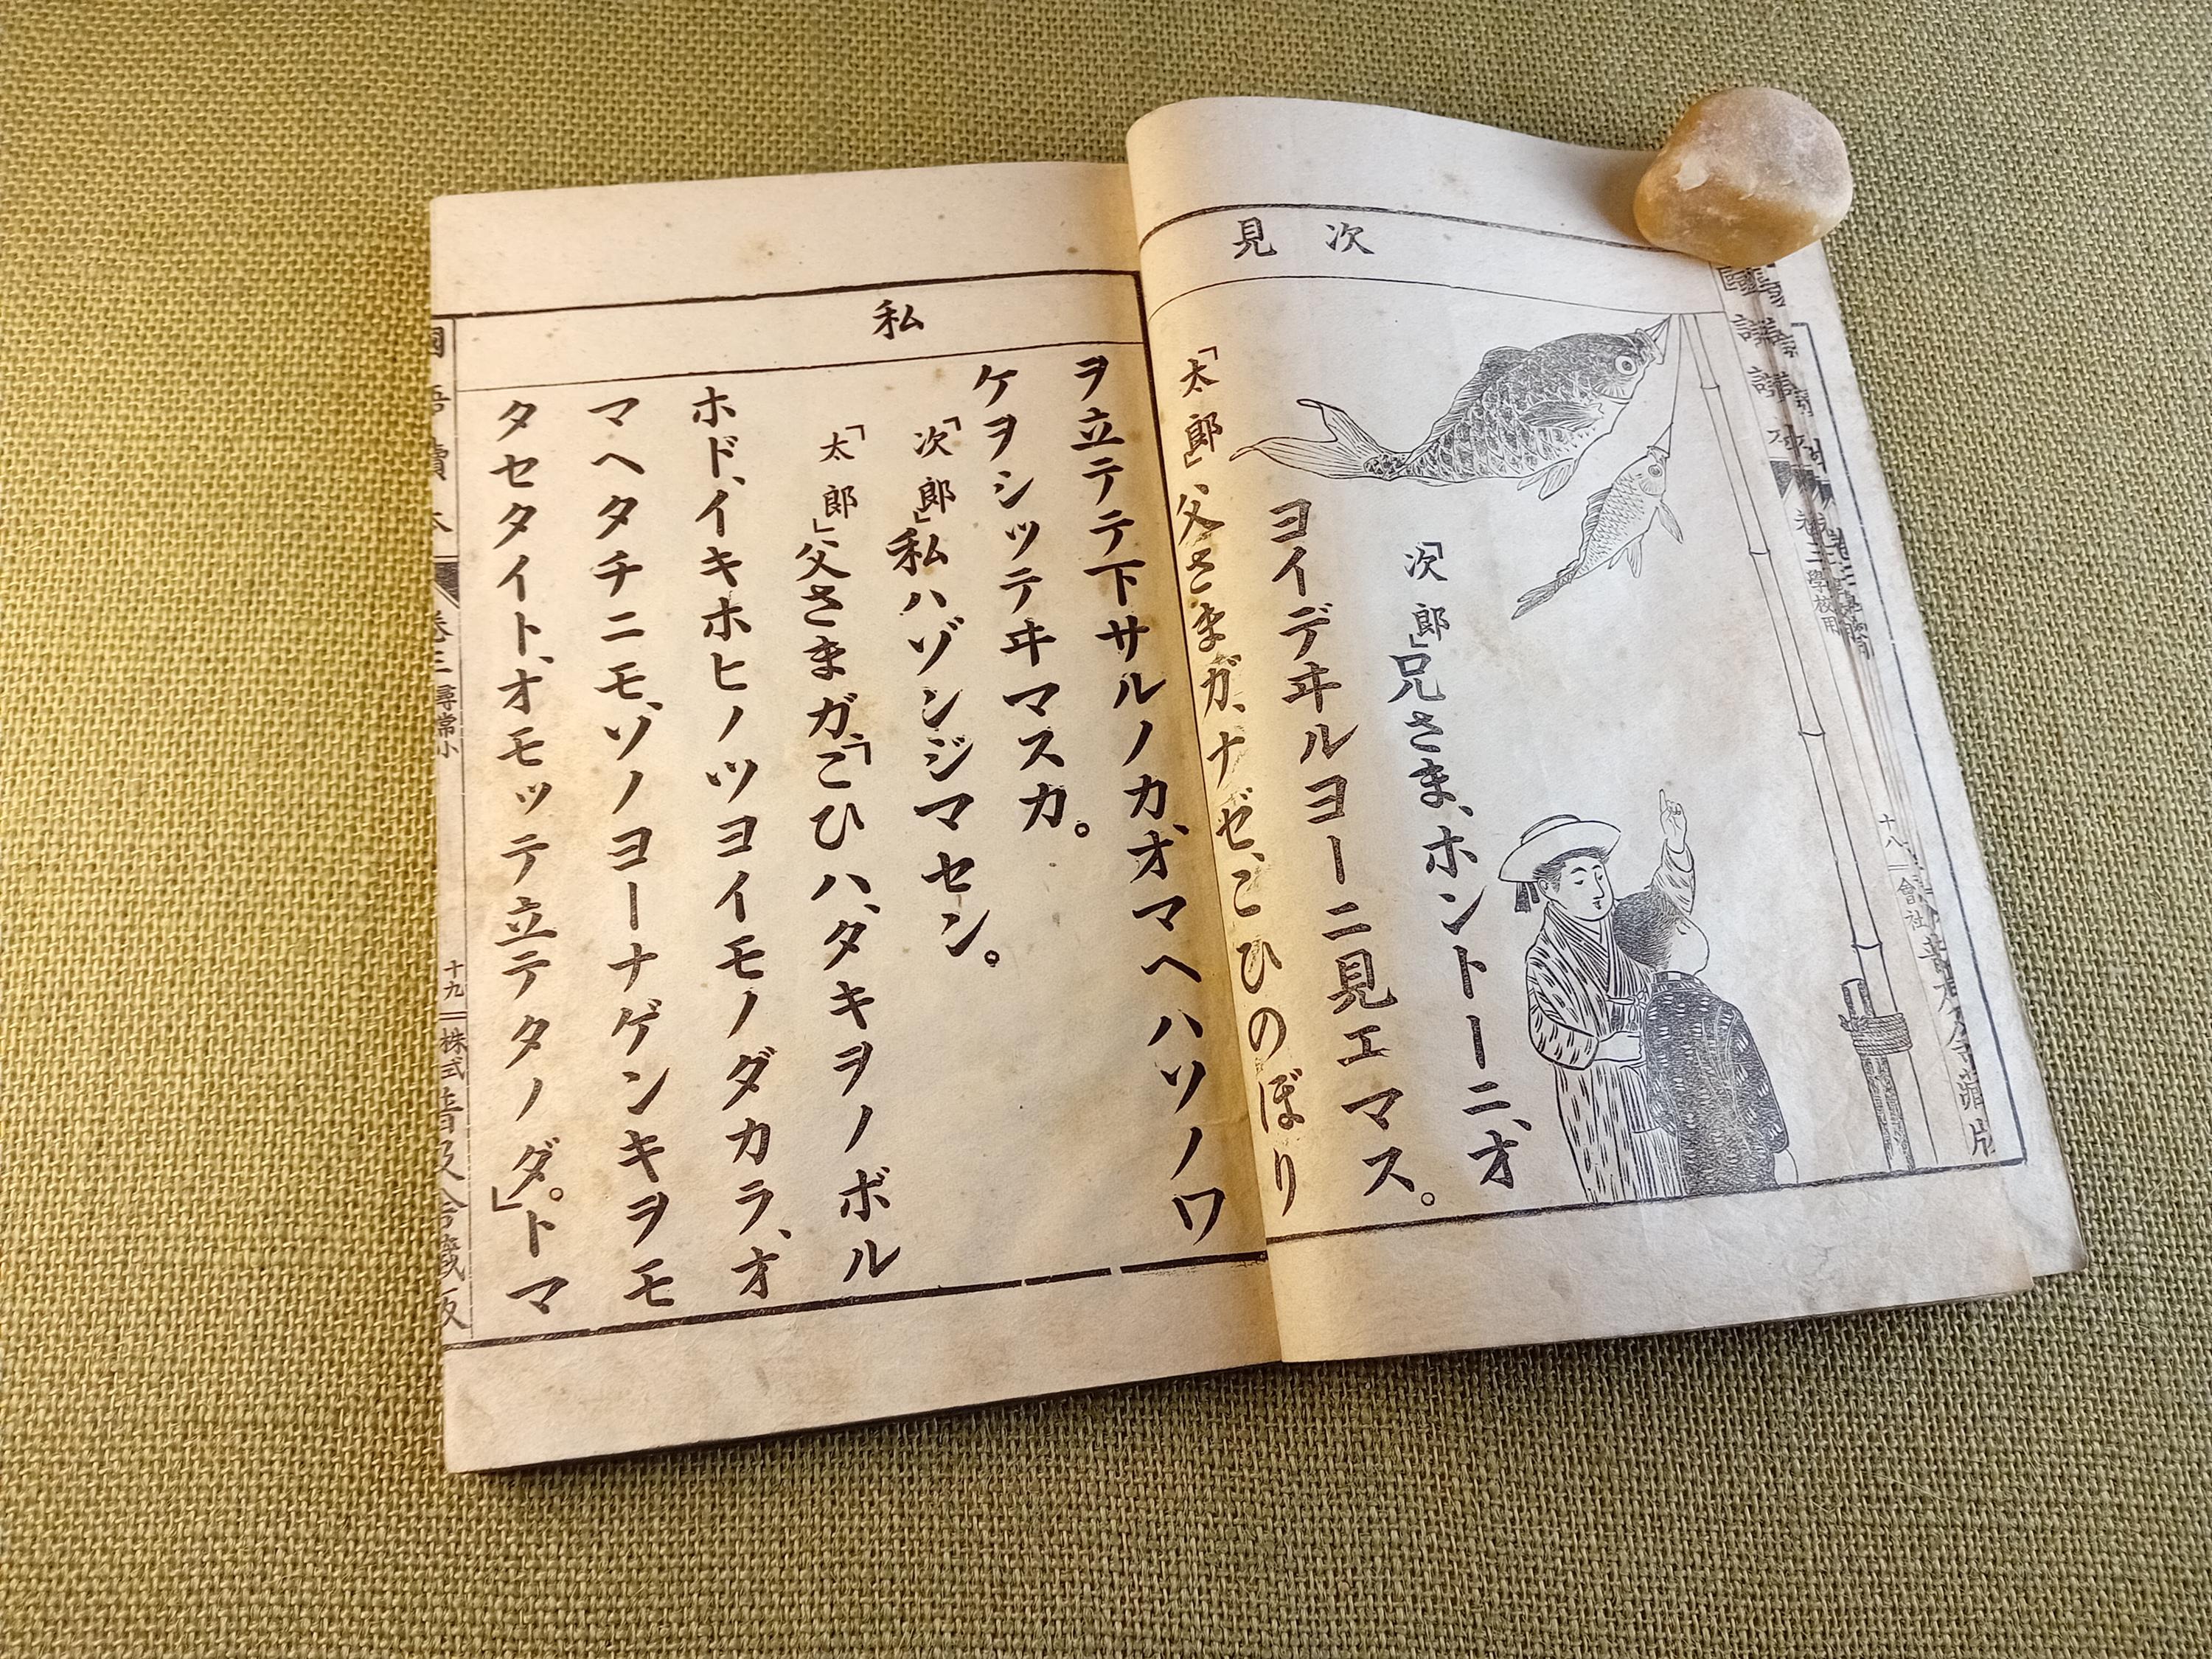 次 見
「次郎」兄さま、ホントーニ、オ
ヨイデヰルヨーニ見エマス。
「太郎」父さまガ、ナゼ、こひのぼり
十八
會社
學校用
私
ヲ立テテ下サルノカ、オマヘハソノワ
ケヲシッテヰマスカ。
「次郎」私ハゾンジマセン。
「太郎」父さまガ、「こひハ、タキヲノボル
ホド、イキホヒノツヨイモノダカラ、オ
マヘタチニモ、ソノヨーナゲンキヲモ
タセタイト、オモッテ立テタノダ。」トマ
卷三 尋常小
十九
株式
普及舍藏版